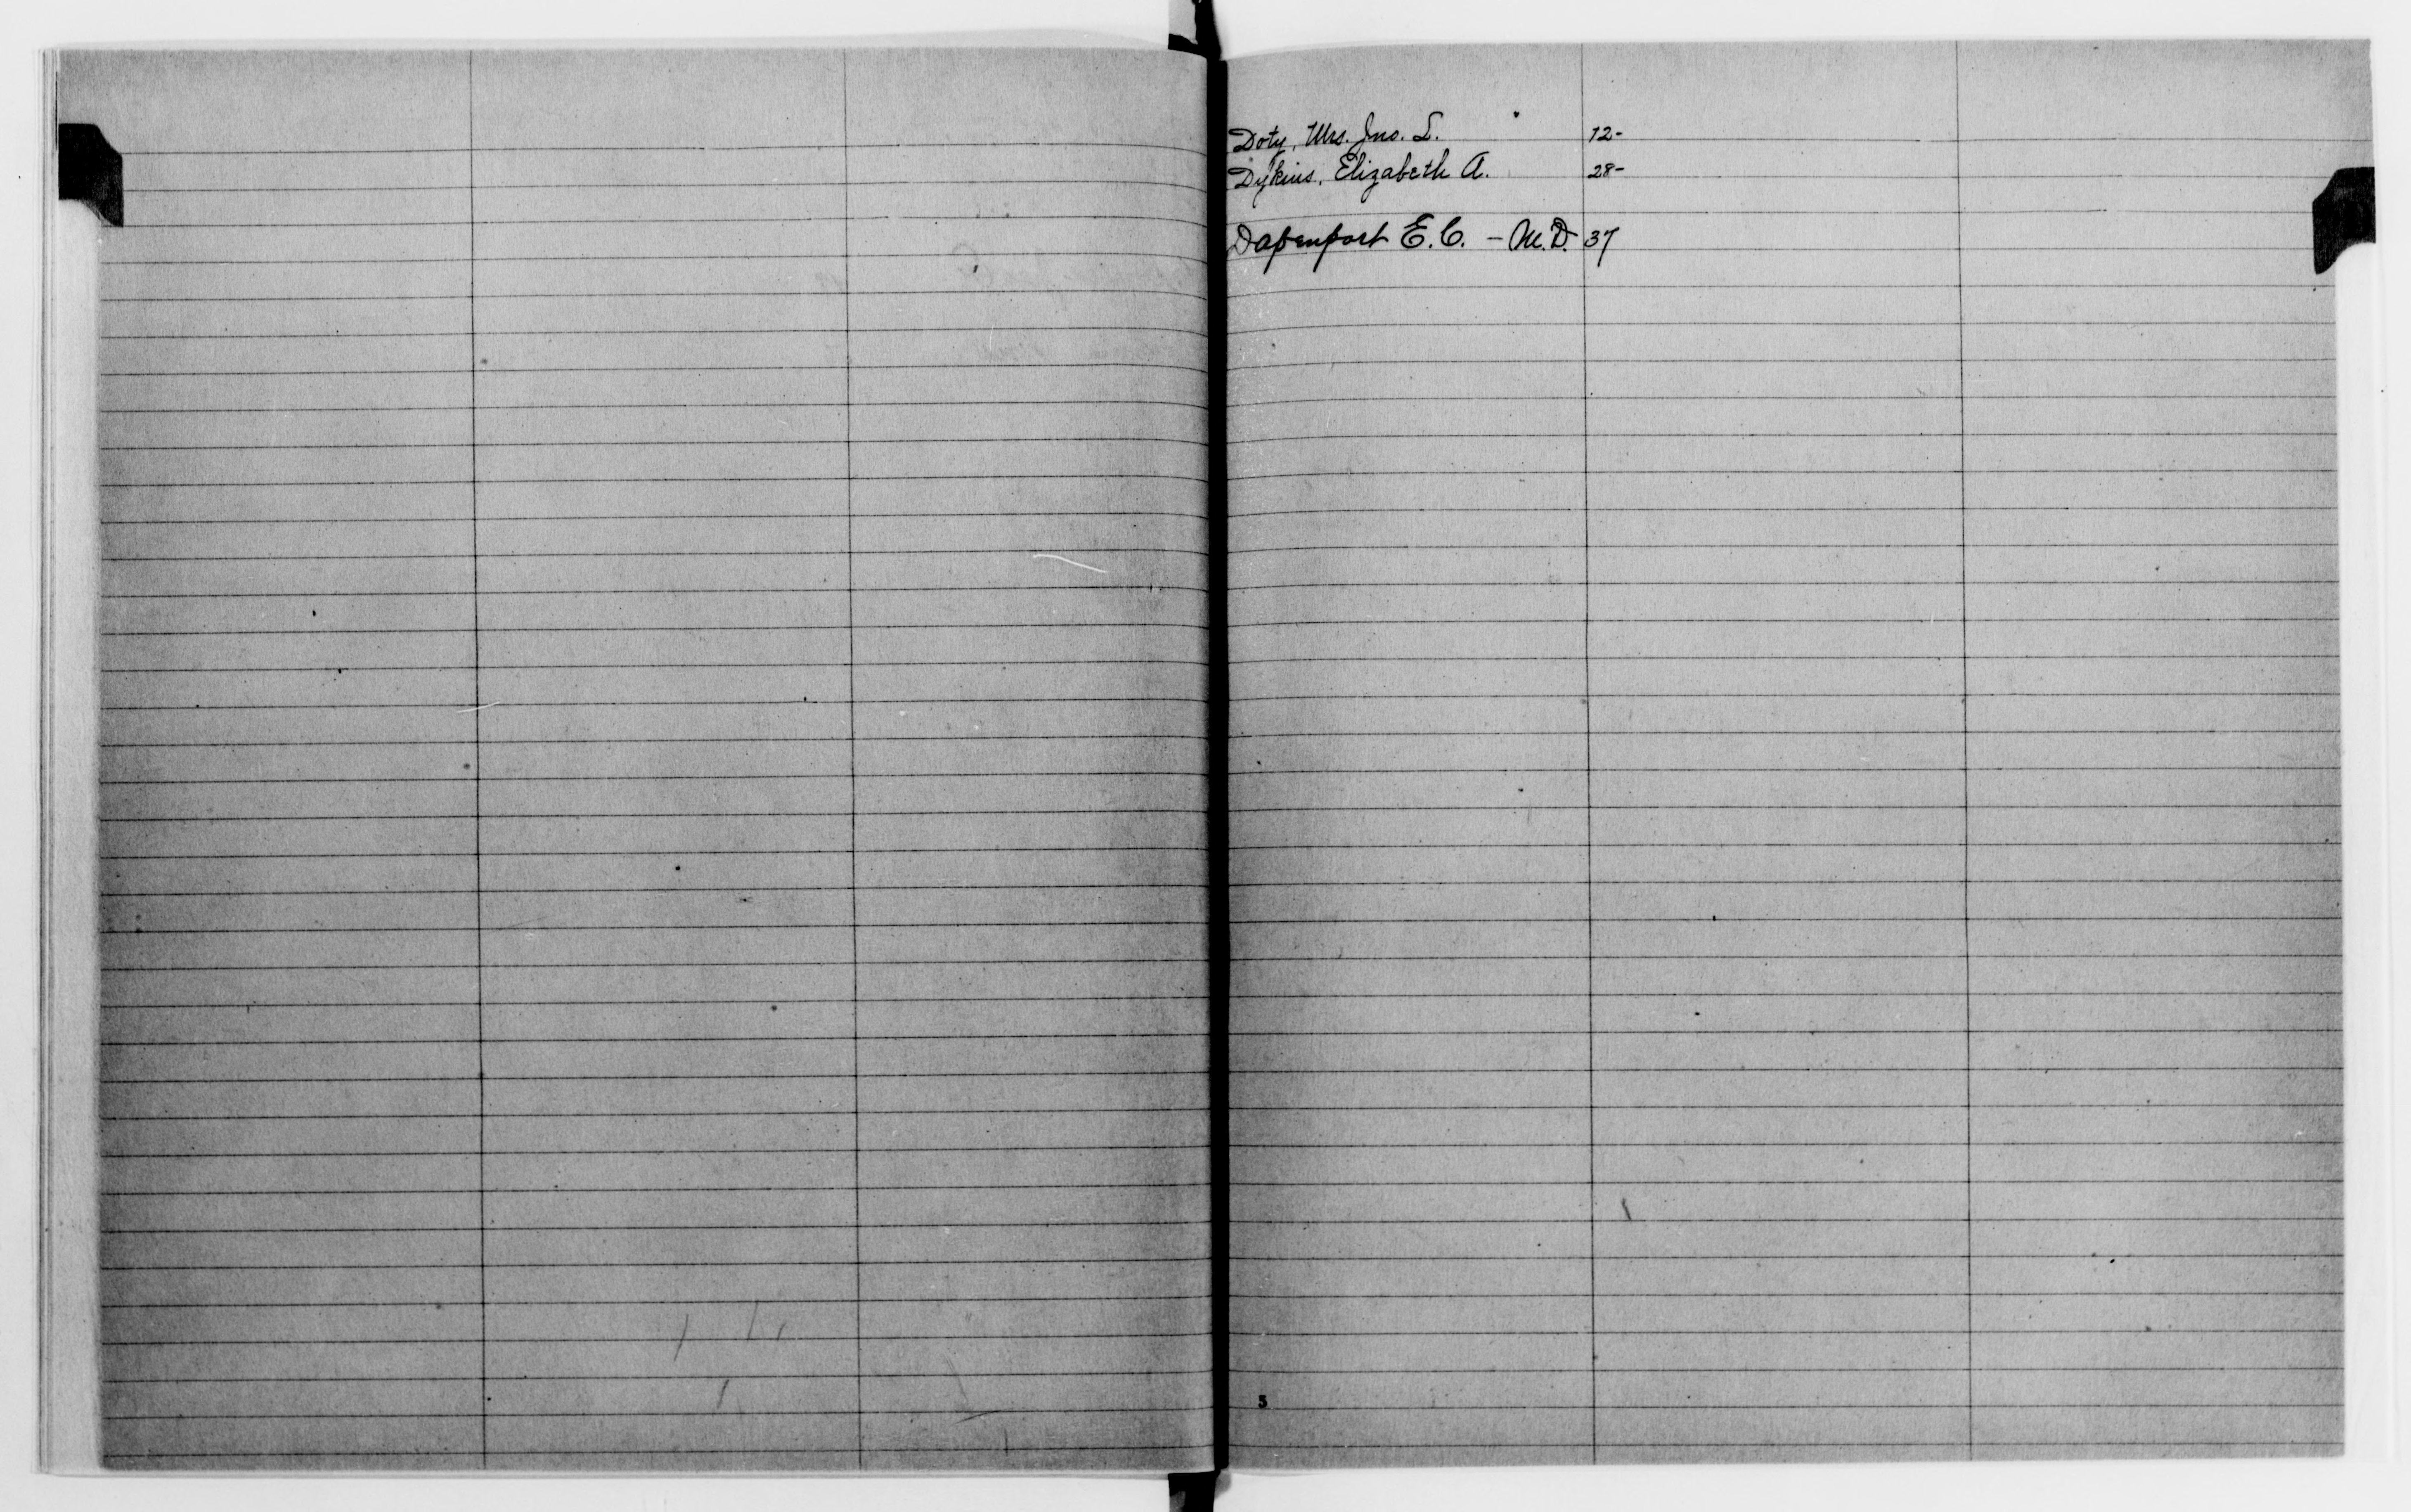 Doty, Mrs. Jno. L. 12-
Dykins, Elizabeth A. 28-
Davenport E. C. - M.D. 37
5